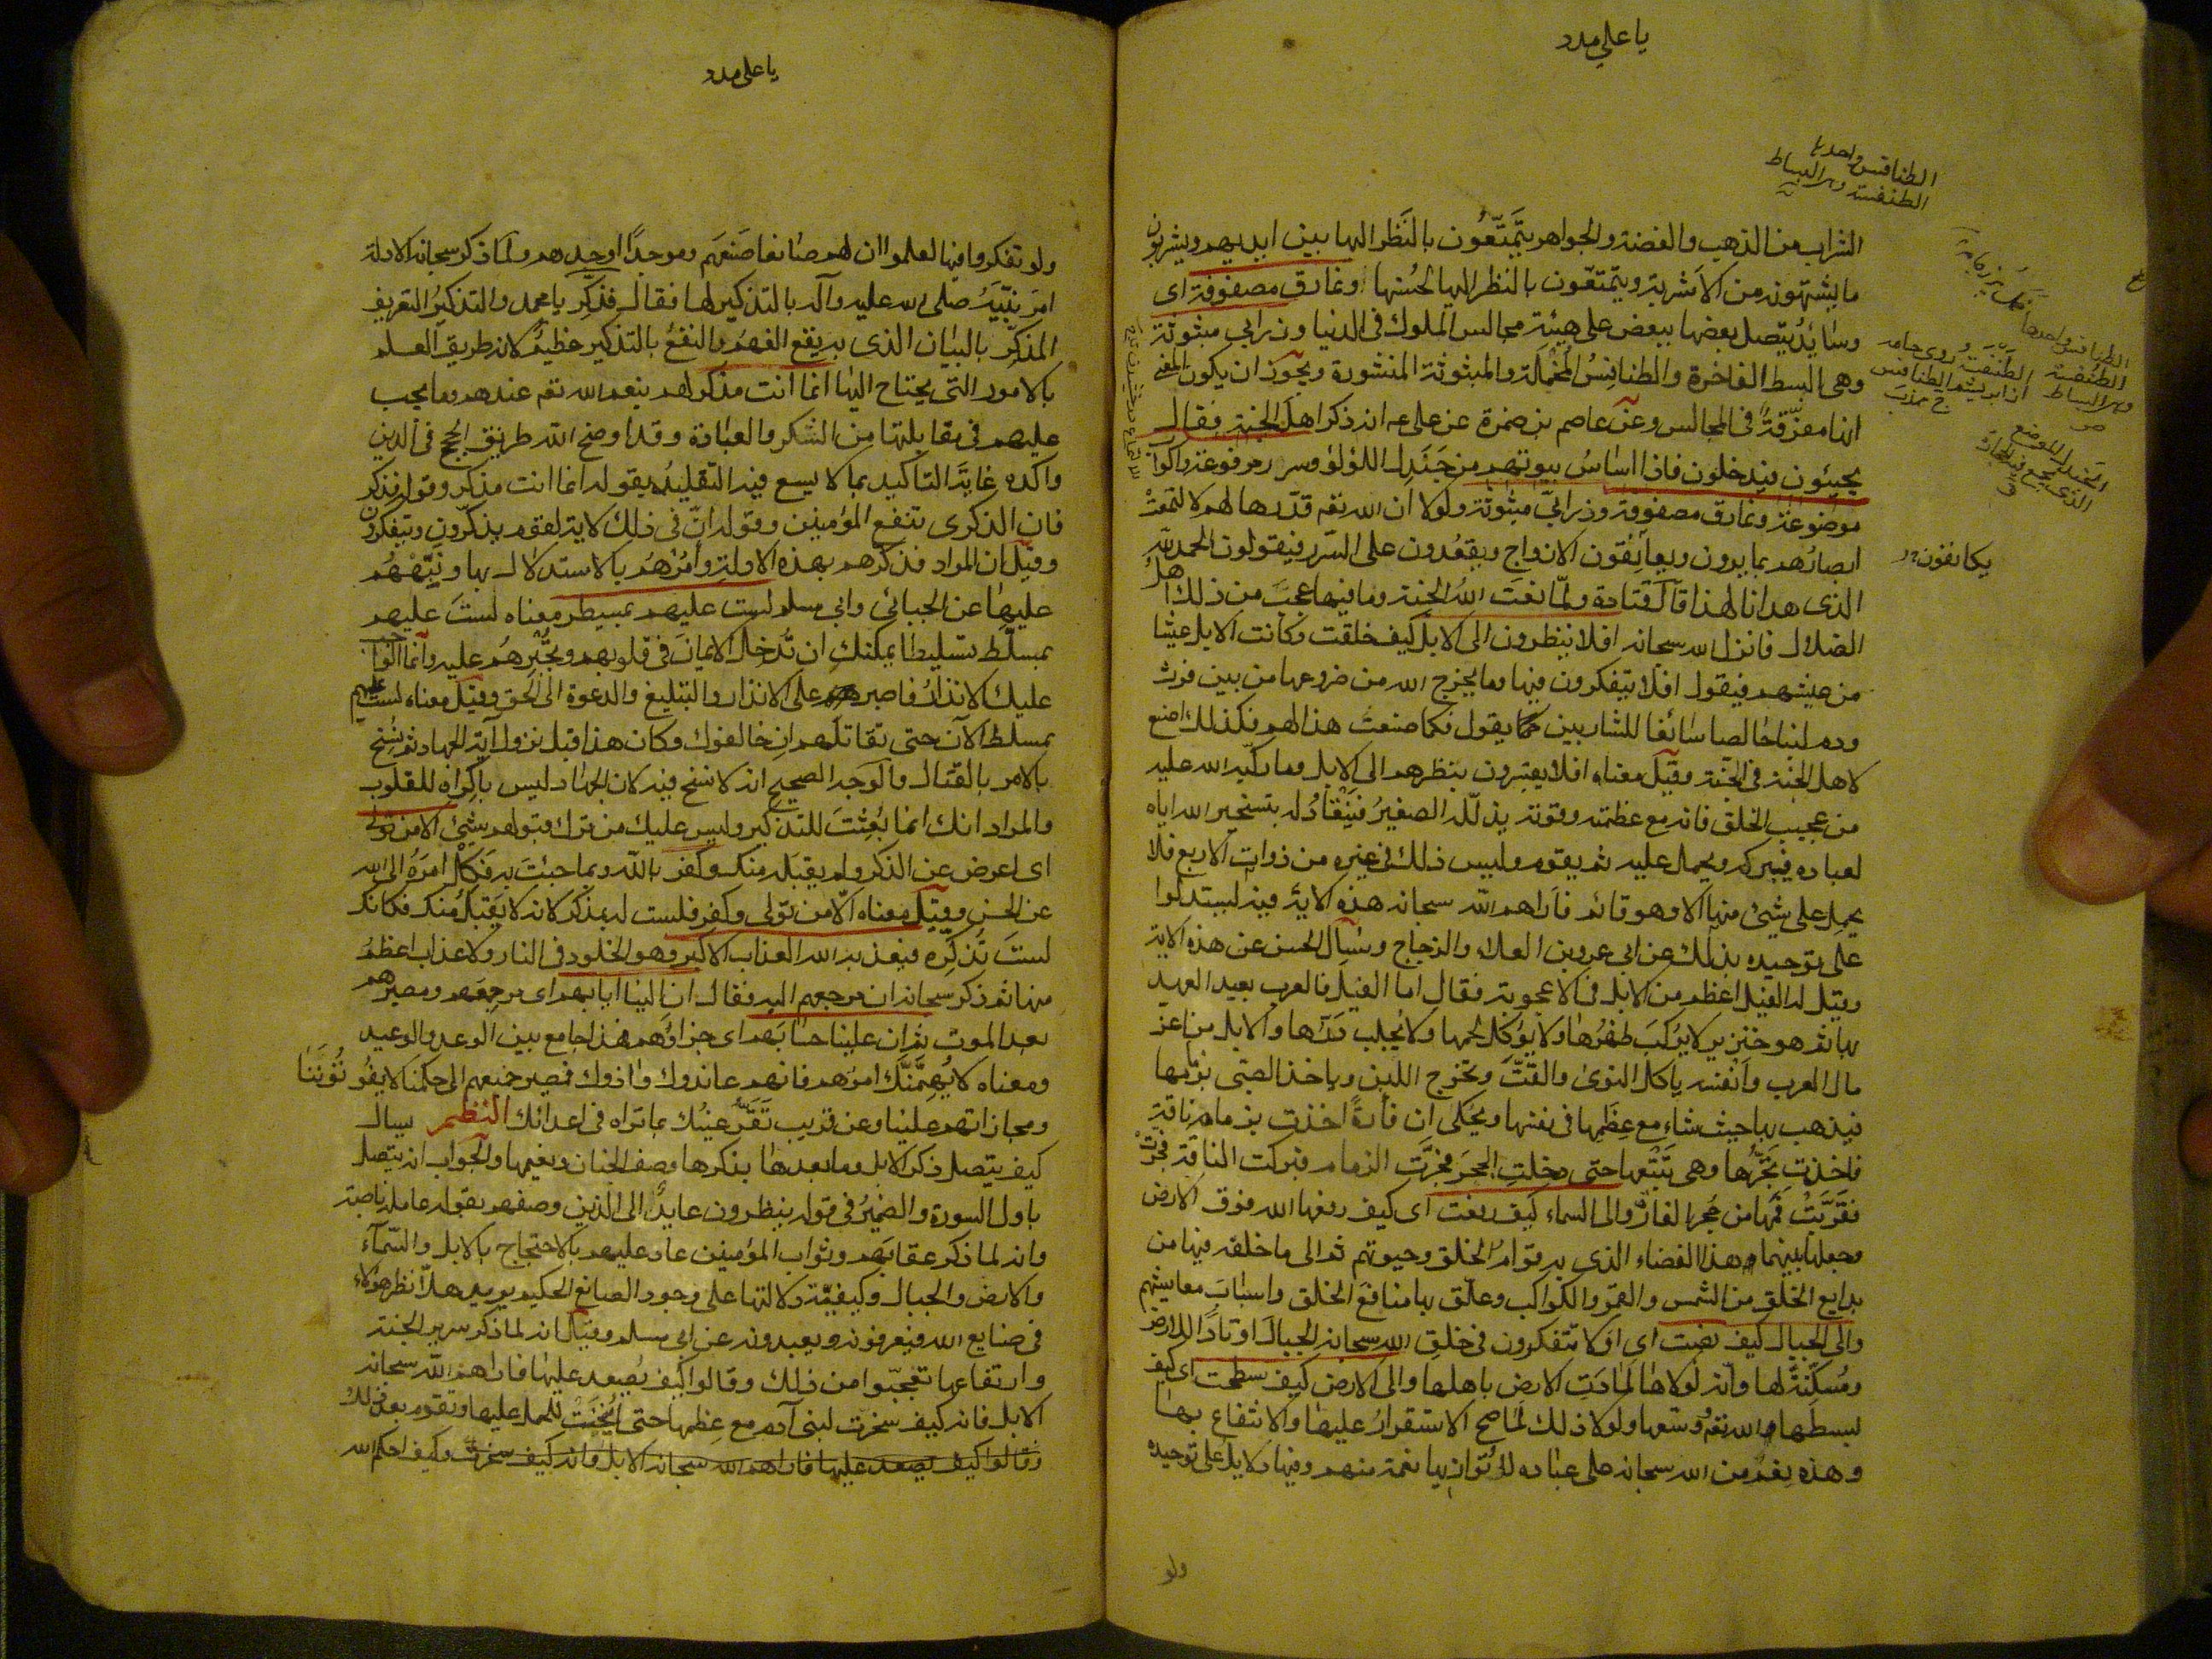 يا علي مدد
الطنافس واحدها
الطنفسة وهي البساط
الشراب من الذهب والفضة والجواهر يتمتّعون بالنظر اليها بين ايديهم ويشربون
ما يشتهونه من الاشربة ويتمتّعون بالنظر اليها لحسنها ونمارق مصفوفة اى
وسائد يتصل بعضها ببعض على هيئة مجالس الملوك فى الدنيا وزرابي مبثوثة
وهى البسط الفاخرة والطنافس المخملة والمبثوثة المنشورة ويجوز ان يكون المعنى
انها مفرّقة فى المجالس وعن عاصم بن ضمرة عن على عه انه ذكر اهل الجنة فقال
يجيئون فيدخلون فاذا اساس بيوتهم من جندل اللؤلؤ وسرر مرفوعة واكواب
موضوعة ونمارق مصفوفة وزرابيّ مبثوثة ولولا ان الله تعم قدّرها لهم لالتمعت
ابصارهم بما يرون ويعانقون الازواج ويقعدون على السرر فيقولون الحمد لله
الذى هدانا لهذا قال قتادة ولمّا نعت الله الجنة وما فيها عجب من ذلك اهل
الضلال فانزل الله سبحانه افلا ينظرون الى الابل كيف خلقت وكانت الابل عيشا
من عيشهم فيقول افلا يتفكرون فيها وما يخرج الله من ضروعها من بين فرث
ودم لبنا خالصا سائغا للشاربين يقول فكما صنعت هذا لهم فكذلك اصنع
لاهل الجنة فى الجنّة وقيل معناه افلا يعتبرون بنظرهم الى الابل وما ركّبه الله عليه
من عجيب الخلق فانه مع عظمته وقوته يذلّله الصغير فينقاد له بتسخير الله اياه
لعباده فيبركه ويحمل عليه ثم يقوم وليس ذلك فى غيره من ذوات الاربع فلا
يحمل على شيئ منها الا وهو قائم فاراهم الله سبحانه هذه الاية فيه ليستدلوا
على توحيده بذلك عن ابى عمرو بن العلاء والزجاج وسئل الحسن عن هذه الاية
وقيل له الفيل اعظم من الابل فى الاعجوبة فقال اما الفيل فالعرب بعيد العهد
بها ثم هو خنزير لا يركب ظهرها ولا يؤكل لحمها ولا يحلب درّها والابل من اعز
مال العرب وانفسه ياكل النوى والقتّ وتخرج اللبن وياخذ الصبى بزمامها
فيذهب بها حيث شاء مع عظمها فى نفسها ويحكى ان فأرة اخذت بزمام ناقة
فاخذت تجرّها وهى تتبعها حتى دخلت الجحر فجرّت الزمام فبركت الناقة فجرّت
فقرّبت فمها من جحر الفار والى السماء كيف رفعت اى كيف رفعها الله فوق الارض
وجعل بينهما هذا الفضاء الذى به قوام الخلق وحيوتهم ثم الى ما خلقه فيها من
بدايع الخلق من الشمس والقمر والكواكب وعلّق بها منافع الخلق واسباب معايشهم
والى الجبال كيف نصبت اى افلا تتفكرون فى خلق الله سبحانه الجبال اوتادًا للارض
ومسكّنة لها وانه لولاها لمادت الارض باهلها والى الارض كيف سطحت اى كيف
بسطها الله تعم ووسّعها ولولا ذلك لما صح الاستقرار عليها والانتفاع بها
وهذه نعم من الله سبحانه على عباده لا توازيها نعمة منهم وفيها دلايل على توحيده
يكانفون
الجندل الموضع
الذى يجتمع فيه الحجارة
ولو
يا على مدد
ولو تفكروا فيها لعلموا ان لهم صانعا صنعهم وموجدًا اوجدهم ولما ذكر سبحانه الادلة
امر نبيّه صلى الله عليه وآله بالتذكير لها فقال فذكّر يا محمد والتذكير التعريف
المذكّر بالبيان الذى به يقع الفهم والنفع بالتذكير عظيم لانه طريق العلم
بالامور التى يحتاج اليها انما انت مذكر لهم بنعم الله تعم عندهم وما يجب
عليهم فى مقابلتها من الشكر والعبادة وقد اوضح الله طريق الحج فى الدين
واكده غاية التاكيد بما لا يسع فيه التقليد بقوله انما انت مذكر وقوله فذكر
فان الذكرى تنفع المؤمنين وقوله انّ فى ذلك لاية لقوم يذكّرون ويتفكرون
وقيل ان المراد فذكرهم بهذه الادلة وامرهم بالاستدلال بها ونبّههم
عليها عن الجبائى وابى مسلم لست عليهم بمسيطر معناه لست عليهم
بمسلّط تسليطا يمكنك ان تدخل الايمان فى قلوبهم وتجبرهم عليه وانما الواجب
عليك الانذار فاصبر على الانذار والتبليغ والدعوة الى الحق وقيل معناه لست عليهم
بمسلط الآن حتى تقاتلهم ان خالفوك وكان هذا قبل نزول آية الجهاد ثم نسخ
بالامر بالقتال والوجه الصحيح انه لا نسخ فيه لان الجهاد ليس باكراه للقلوب
والمراد انك انما بعثت للتذكير وليس عليك من ترك قبولهم شيئ الا من تولى
اى اعرض عن الذكر ولم يقبله منك وكفر بالله وبما جئت به فكل امره الى الله
عن الحسن وقيل معناه الّا من تولى وكفر فلست له بمذكر لانه لا يقبل منك فكانك
لست تذكره فيعذبه الله العذاب الاكبر وهو الخلود فى النار ولا عذاب اعظم
منه ثم ذكر سبحانه ان مرجعهم اليه فقال ان الينا ايابهم اى مرجعهم ومصيرهم
بعد الموت ثم ان علينا حسابهم اى جزاؤهم فهذا جامع بين الوعد والوعيد
ومعناه لا يهمّنّك امرهم فانهم عاندوك واذوك فمصير جميعهم الى حكمنا لا يفوتوننا
ومجازاتهم علينا وعن قريب تقرّ عينك بما تراه فى اعدائك النظم يسال
كيف يتصل ذكر الابل وما بعدها بذكر وصف الجنان ونعيمها والجواب انه يتصل
باول السورة والضمير فى قوله ينظرون عايد الى الذين وصفهم بقوله عاملة ناصبة
وانه لما ذكر عقابهم وثواب المؤمنين عاد عليهم بالاحتجاج بالابل والسّماء
والارض والجبال وكيفيّة دلالتها على وجود الصانع الحكيم يريد هلّا نظر هؤلاء
فى صنايع الله فيعرفونه ويعبدونه عن ابى مسلم وقيل انه لما ذكر سرير الجنة
وارتفاعها تعجّبوا من ذلك وقالوا كيف يصعد عليها فاراهم الله سبحانه
الابل فانه كيف سخرت لبنى آدم مع عظمها حتى انيخت للحمل عليها وتقوم بعد ذلك
وقالوا كيف يصعد عليها فاراهم الله سبحانه الابل فانه كيف سخرت وكيف احكم الله